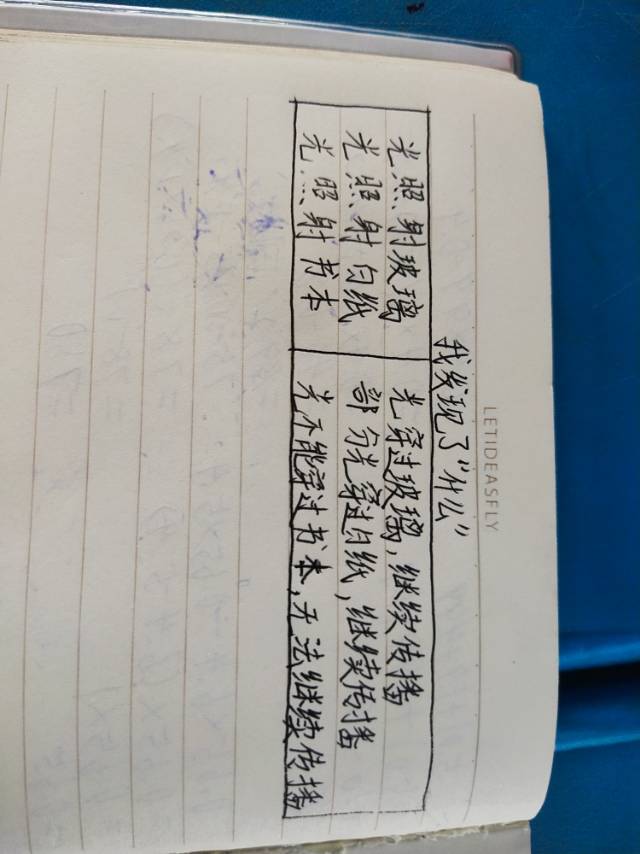 LETIDEASFLY
我发现了“什么”
光照射玻璃 光穿过玻璃,继续传播
光照射白纸 部分光穿过白纸,继续传播
光照射书本 光不能穿过书本,无法继续传播